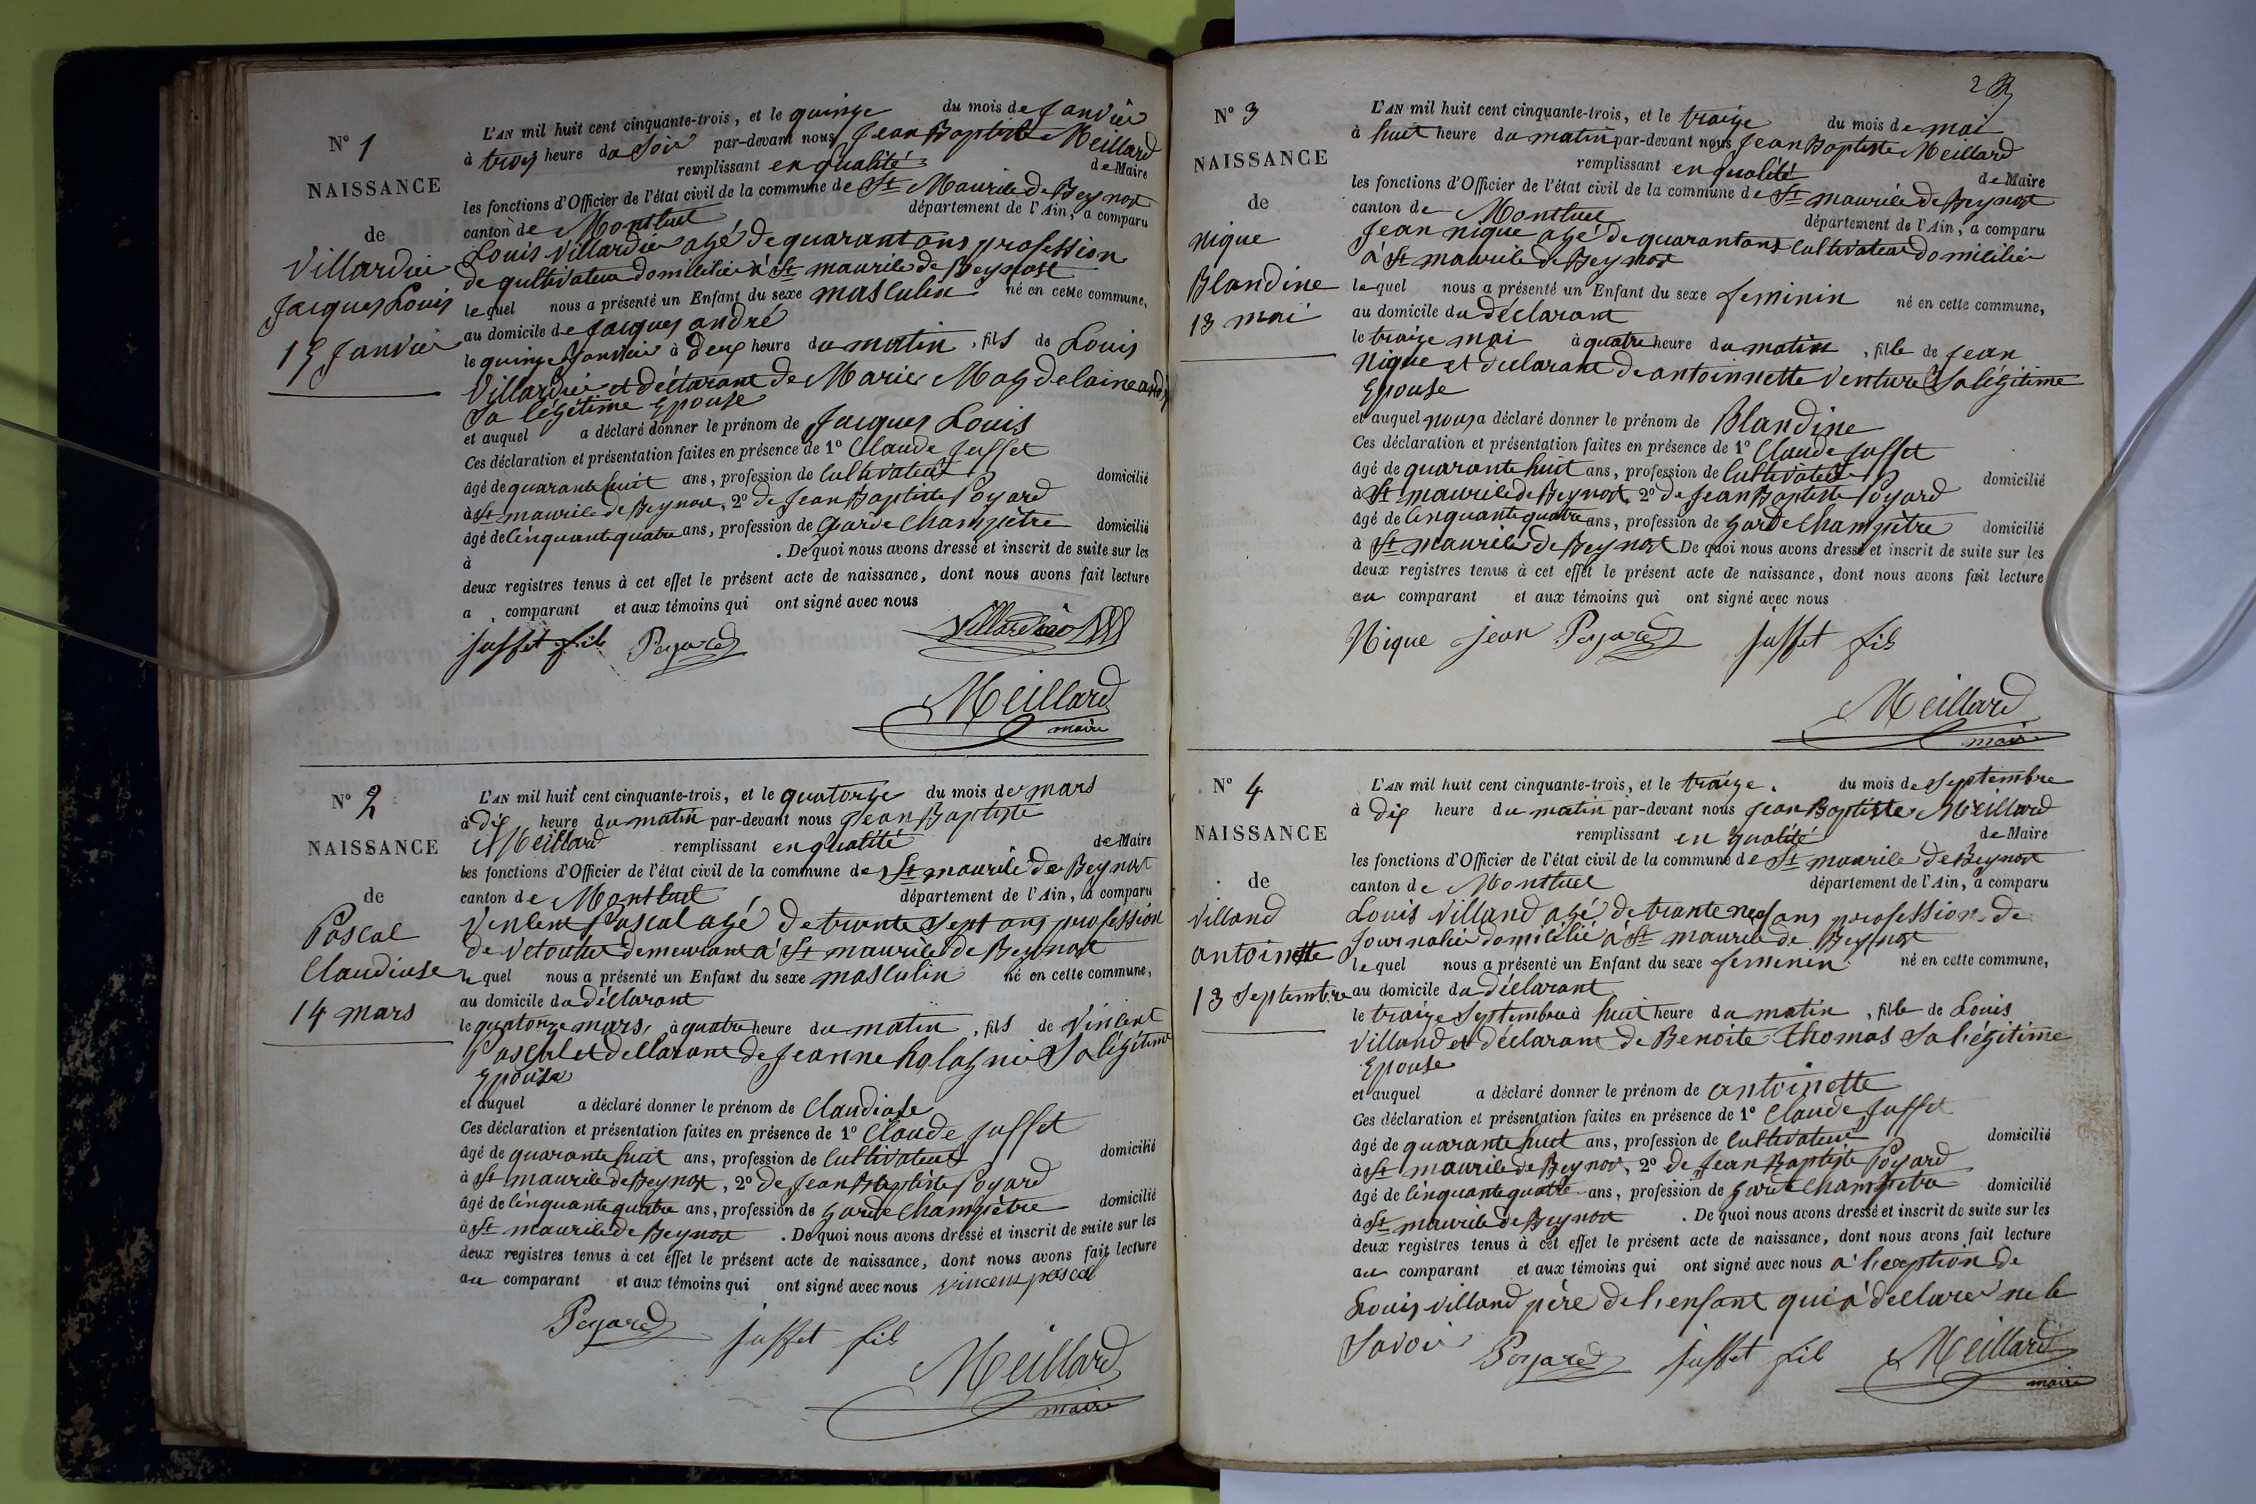 N° 1
NAISSANCE
de
Villardier
Jacques Louis
15 Janvier
L'AN mil huit cent cinquante-trois, et le quinze du mois de Janvier
à trois heure du soir par-devant nous Jean Baptiste Meillard
remplissant en qualité de Maire
les fonctions d'Officier de l'état civil de la commune de St Maurice de Beynost
canton de Montluel département de l'Ain, a comparu
Louis Villardier agé de quarant ans profession
de qultivateur domicilié à St maurice de Beynost
lequel nous a présenté un Enfant du sexe masculin né en cette commune,
au domicile de Jacques andré
le quinze Janvier à deux heure du matin, fils de Louis
Villardier et déclarant de Marie Magdelaine andré
Sa légitime Epouse
et auquel a déclaré donner le prénom de Jacques Louis
Ces déclaration et présentation faites en présence de 1° Claude Juffet
âgé de quarante huit ans, profession de Cultivateur domicilié
à St maurice de Beynost, 2° de Jean Baptiste Poyard
âgé de cinquante quatre ans, profession de Garde Champêtre domicilié
à . De quoi nous avons dressé et inscrit de suite sur les
deux registres tenus à cet effet le présent acte de naissance, dont nous avons fait lecture
a comparant et aux témoins qui ont signé avec nous
Juffet fils Poyard Villardier
Meillard
maire
N° 2
NAISSANCE
de
Pascal
Claudiuse
14 mars
L'AN mil huit cent cinquante-trois, et le quatorze du mois de mars
à dix heure du matin par-devant nous Jean Baptiste
Meillard remplissant en qualité de Maire
les fonctions d'Officier de l'état civil de la commune de St maurice de Beynost
canton de Montluel département de l'Ain, a comparu
Vincent Pascal agé de trante Sept ans profession
de Voiturier demeurant à St maurice de Beynost
lequel nous a présenté un Enfant du sexe masculin né en cette commune,
au domicile du déclarant
le quatorze mars, à quatre heure du matin, fils de Vincent
Pascal et déclarant de Jeanne Sa légitime
Epouse
et auquel a déclaré donner le prénom de Claudiuse
Ces déclaration et présentation faites en présence de 1° Claude Juffet
âgé de quarante huit ans, profession de Cultivateur domicilié
à St maurice de Beynost, 2° de Jean Baptiste Poyard
âgé de cinquante quatre ans, profession de garde Champêtre domicilié
à St maurice de Beynost . De quoi nous avons dressé et inscrit de suite sur les
deux registres tenus à cet effet le présent acte de naissance, dont nous avons fait lecture
au comparant et aux témoins qui ont signé avec nous vincent pascal
Poyard Juffet fils
Meillard
maire
N° 3
NAISSANCE
de
Nique
Blandine
13 mai
L'AN mil huit cent cinquante-trois, et le traize du mois de mai
à huit heure du matin par-devant nous Jean Baptiste Meillard
remplissant en qualité de Maire
les fonctions d'Officier de l'état civil de la commune de St maurice de Beynost
canton de Montluel département de l'Ain, a comparu
Jean nique agé de quarantans Cultivateur domicilié
à St maurice de Beynost
lequel nous a présenté un Enfant du sexe feminin né en cette commune,
au domicile du déclarant
le traize mai à quatre heure du matin, fille de Jean
Nique et declarant de antoinnette Venture Sa légitime
Epouse
et auquel nous a déclaré donner le prénom de Blandine
Ces déclaration et présentation faites en présence de 1° Claude Juffet
âgé de quarante huit ans, profession de Cultivateur domicilié
à St maurice de Beynost, 2° de Jean Baptiste Poyard
âgé de cinquante quatre ans, profession de garde Champêtre domicilié
à St maurice de Beynost De quoi nous avons dressé et inscrit de suite sur les
deux registres tenus à cet effet le présent acte de naissance, dont nous avons fait lecture
au comparant et aux témoins qui ont signé avec nous
Nique jean Poyard Juffet fils
Meillard
maire
N° 4
NAISSANCE
de
Villand
antoinette
13 Septembre
L'AN mil huit cent cinquante-trois, et le traize. du mois de Septembre
à dix heure du matin par-devant nous Jean Baptiste Meillard
remplissant en qualité de Maire
les fonctions d'Officier de l'état civil de la commune de St maurice de Beynost
canton de Montluel département de l'Ain, a comparu
Louis Villand agé de trante neuf ans profession de
Journalié domicilié à St maurice de Beynost
lequel nous a présenté un Enfant du sexe feminin né en cette commune,
au domicile du déclarant
le traize Septembre à huit heure du matin, fille de Louis
Villand et déclarant de Benoite Thomas Sa légitime
Epouse
et auquel a déclaré donner le prénom de antoinette
Ces déclaration et présentation faites en présence de 1° Claude Juffet
âgé de quarante huit ans, profession de Cultivateur domicilié
à St maurice de Beynost, 2° de Jean Baptiste Poyard
âgé de cinquante quatre ans, profession de garde Champetre domicilié
à St maurice de Beynost . De quoi nous avons dressé et inscrit de suite sur les
deux registres tenus à cet effet le présent acte de naissance, dont nous avons fait lecture
au comparant et aux témoins qui ont signé avec nous a l'exeption de
Louis Villand père de l'enfant qui a déclaré ne le
Savoir Poyard Juffet fils Meillard
maire